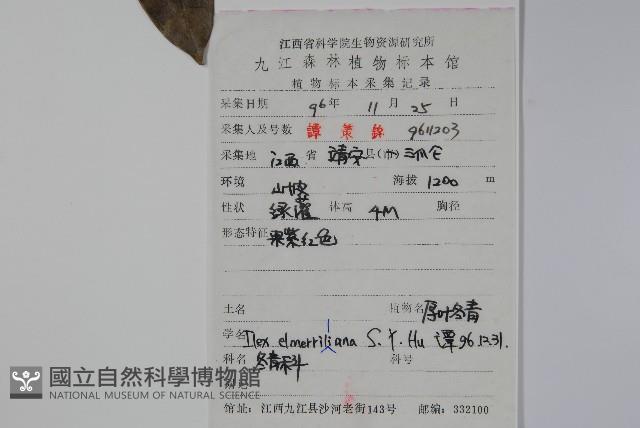 江西省科学院生物资源研究所
九江森林植物标本馆
植物标本采集记录
采集日期 96年 11月 25日
采集人及号数 譚策銘 9611203
采集地 江西省 靖安县(市) 三爪仑
环境 山坡 海拔 1200 m
性状 绿灌 体高 4M 胸径
形态特征 果紫红色
土名 植物名 厚叶冬青
学名 Ilex elmerriliana S.Y.Hu 谭961231.
科名 冬青科 科号
附记
國立自然科學博物館
NATIONAL MUSEUM OF NATURAL SCIENCE
馆址:江西九江县沙河老街143号 邮编:332100